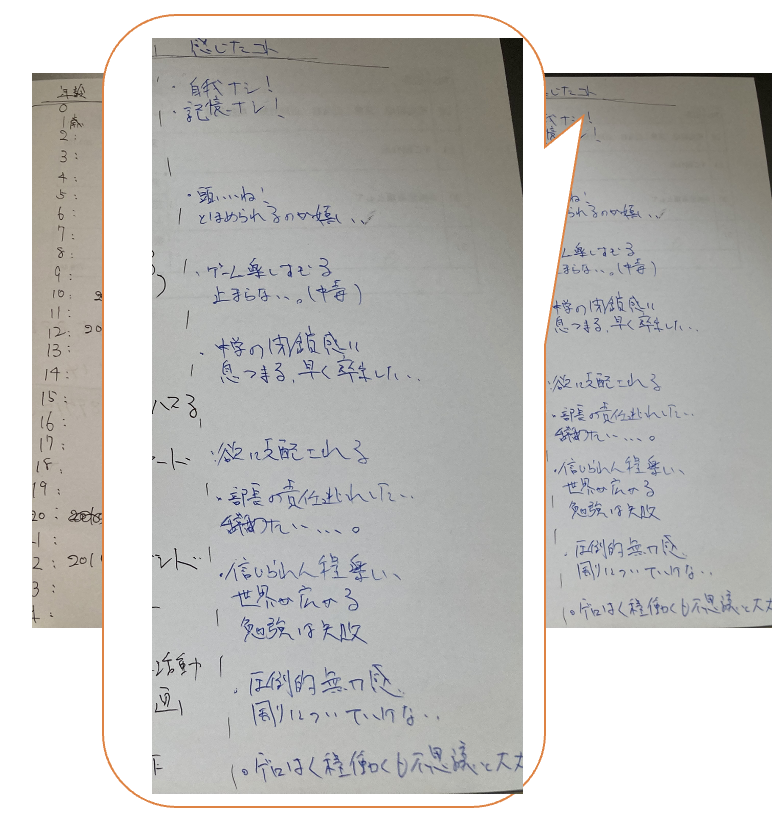 年齢
0
1歳
2:
3:
4:
5:
6:
7:
8:
9:
10:
11:
12: 20
13:
14:
15:
16:
17:
18.
19:
20:
1:
2: 201
3:
感じたコト
・自我ナシ!
・記憶ナシ!
・頭いいね!
とほめられるのが嬉しい
・ゲーム楽しすぎる
止まらない…。(中毒)
・中学の閉鎖感に
息つまる、早く卒業したい…
ハマる
・欲に支配される
・部長の責任逃れしたい…
辞めたい……。
・信じられん程楽しい、
世界が広がる
勉強は失敗
活動
・圧倒的無力感
周りについていけない…
・ゲロはく程働くも不思議と大丈
感じたコト
我ナシ!
憶ナシ!
ね!
られるのが嬉しい
ム楽しすぎる
止まらない…。(中毒)
中学の閉鎖感に
息つまる、早く卒業したい…
・欲に支配される
・部長の責任逃れしたい…
辞めたい……。
・信じられん程楽しい、
世界が広がる
勉強は失敗
・圧倒的無力感
周りについていけない…
・ゲロはく程働くも不思議と大丈